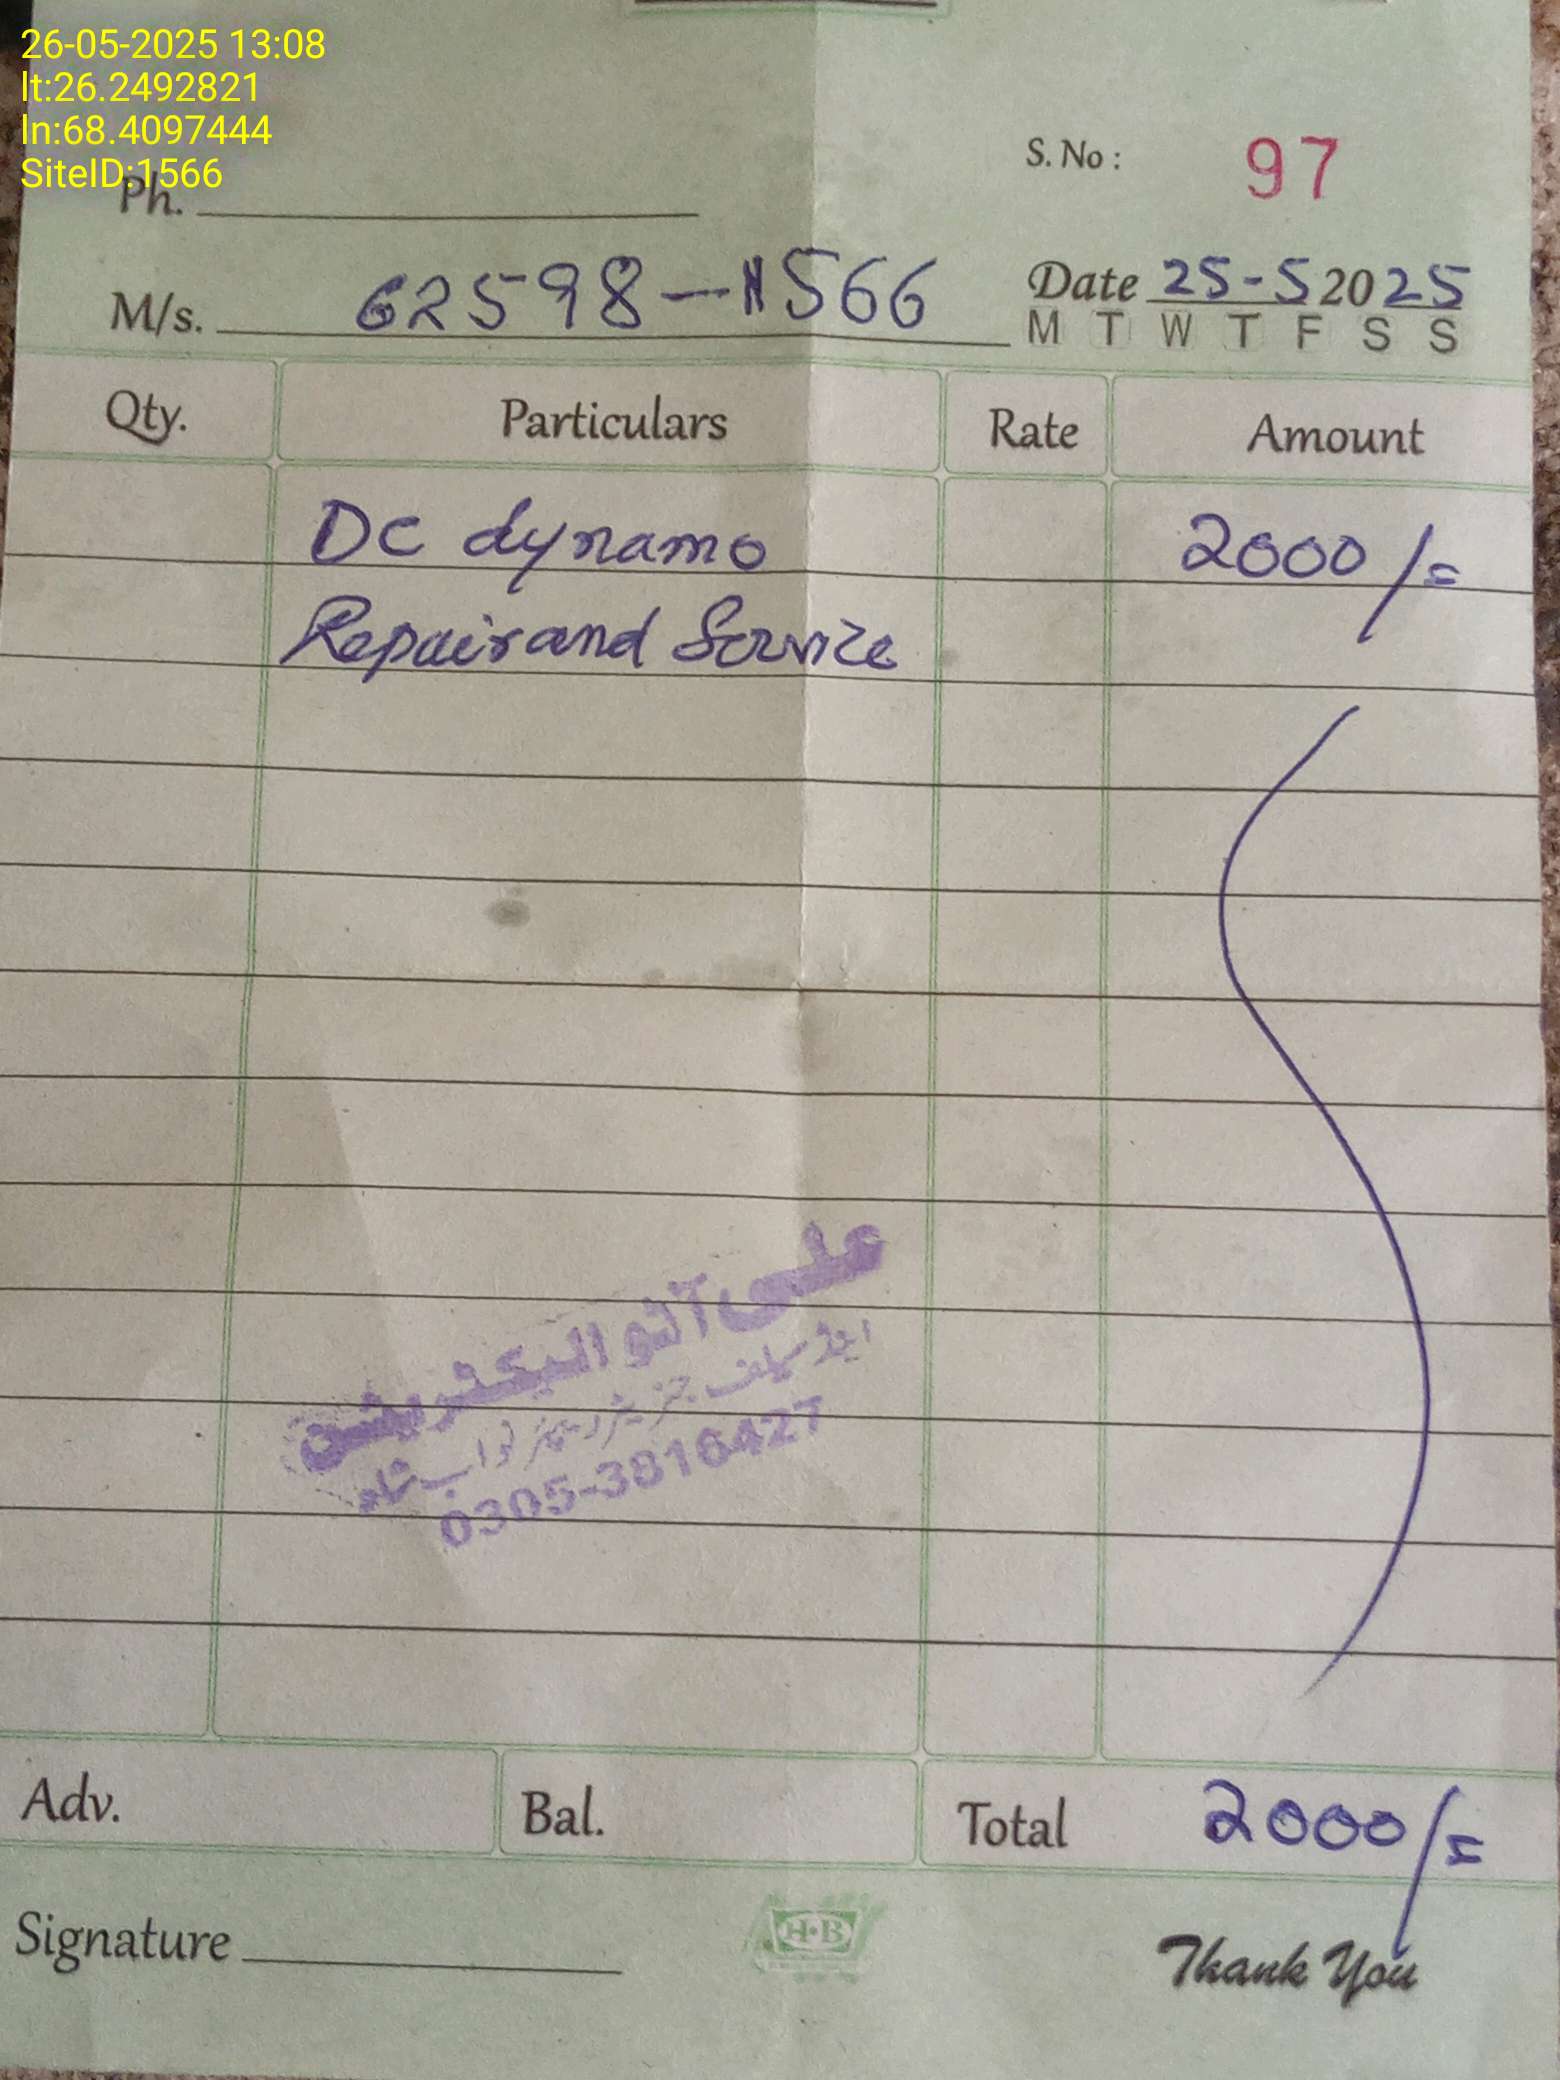 26-05-2025 13:08
lt:26.2492821
ln:68.4097444
SiteID:1566
S. No : 97
Ph.
M/s. G2598-1566
Date 25-5 2025
M T W T F S S
Qty. Particulars Rate Amount
DC dynamo 2000/=
Repair and Service
علی آٹو الیکٹریشن
اینڈ سیلف جنریٹر ریپئر نواب شاہ
0305-3816427
Adv. Bal. Total 2000/=
Signature
H·B
Thank You